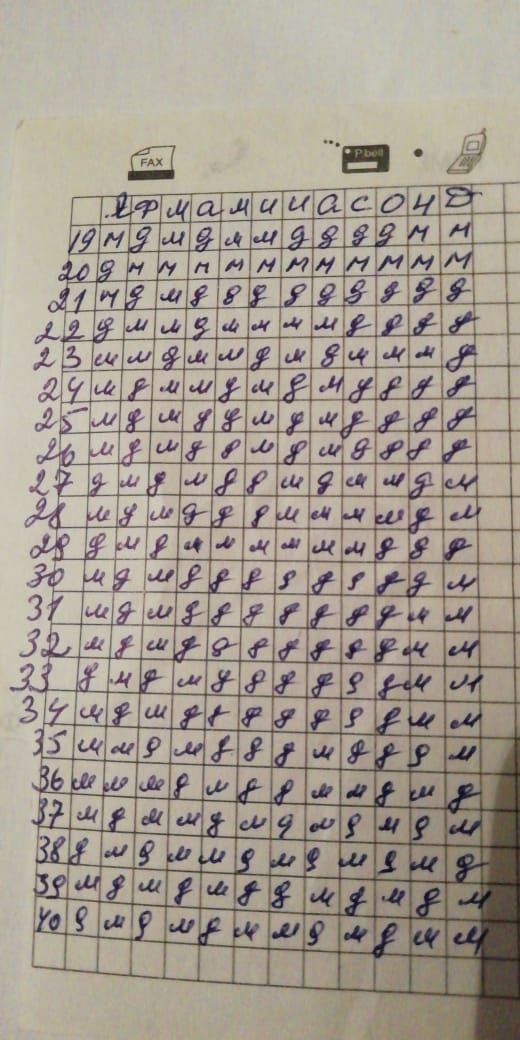 FAX P.bell
Я Ф М А М И И А С О Н Д
19 м д м д м м д д д д м м
20 д м м м м м м м м м м м
21 м д м д д д д д д д д д
22 д м м д м м м м д д д д
23 м м д м м д м д м м м д
24 м д м м д м д м д д д д
25 м д м д д м д м д д д д
26 м д м д д м д м д д д д
27 д м д м д д м д м м д м
28 м д м д д д м м м м д м
29 д м д м м м м м м д д д
30 м д м д д д д д д д д м
31 м д м д д д д д д д м м
32 м д м д д д д д д д м м
33 д м д м д д д д д д м м
34 м д м д д д д д д д м м
35 м м д м д д д м д д д м
36 м м м д м д д м м д м д
37 м д м м д м д м д м д м
38 д м д м м д м д м д м д
39 м д м д м д д м д м д м
40 д м д м д м м д м д м м